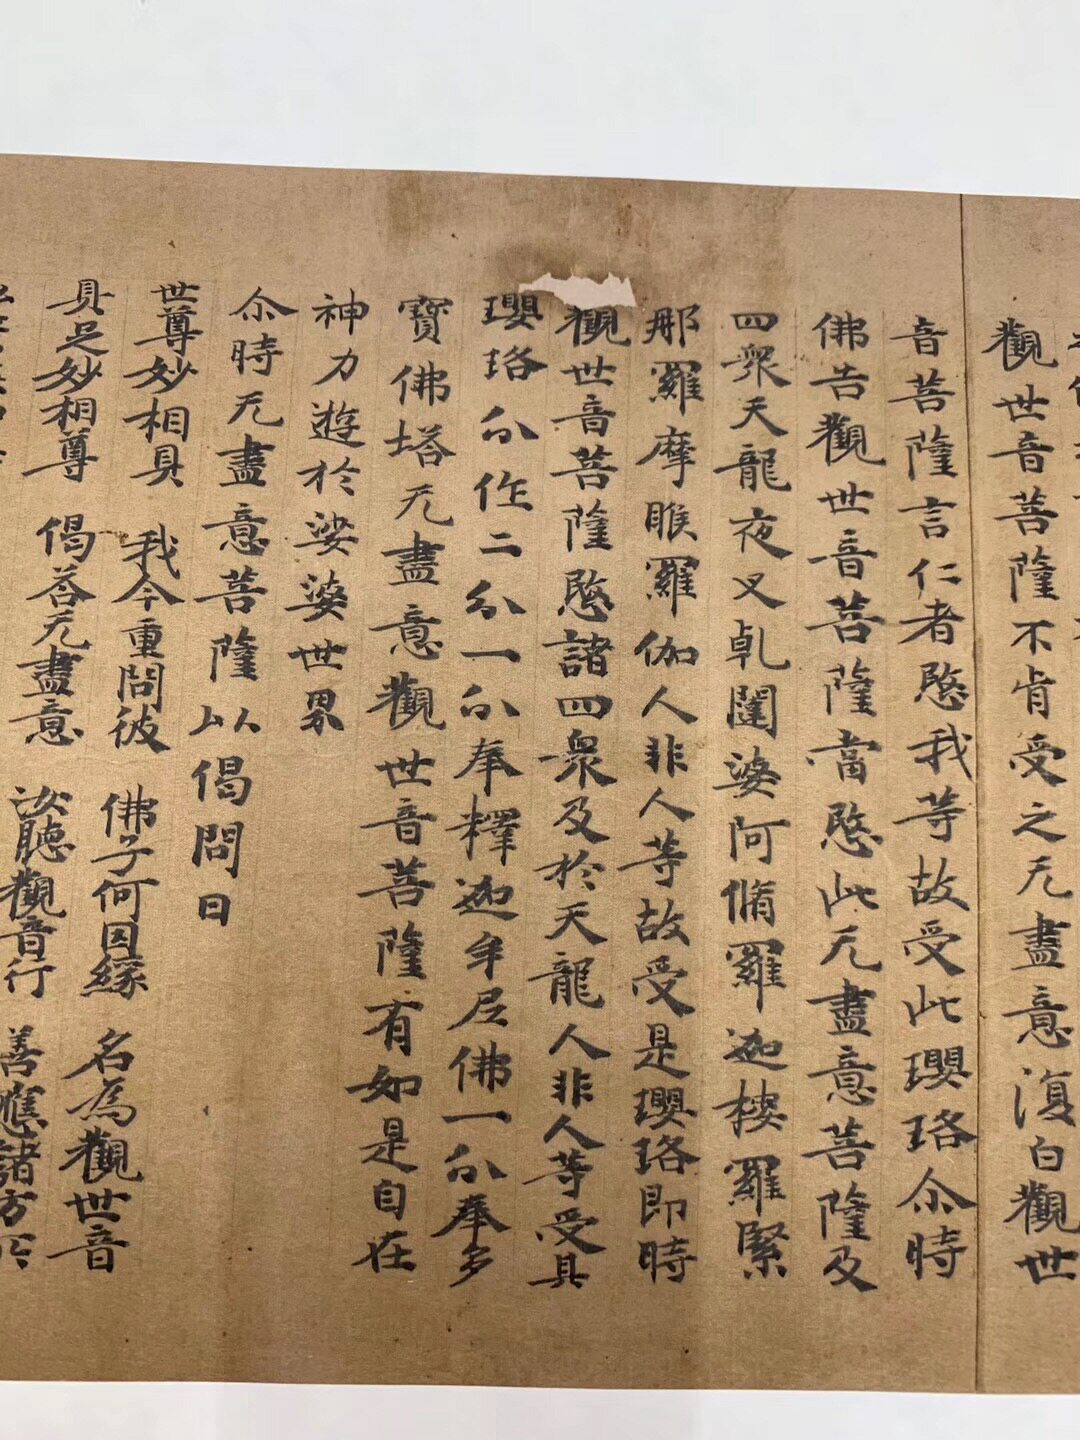 觀世音菩薩不肯受之无盡意復白觀世
音菩薩言仁者愍我等故受此瓔珞尒時
佛告觀世音菩薩當愍此无盡意菩薩及
四衆天龍夜叉乹闥婆阿脩羅迦樓羅緊
那羅摩睺羅伽人非人等故受是瓔珞即時
觀世音菩薩愍諸四衆及於天龍人非人等受其
瓔珞分作二分一分奉釋迦牟尼佛一分奉多
寶佛塔无盡意觀世音菩薩有如是自在
神力遊於娑婆世界
尒時无盡意菩薩以偈問曰
世尊妙相具 我今重問彼 佛子何因緣 名為觀世音
具足妙相尊 偈荅无盡意 汝聽觀音行 善應諸方所